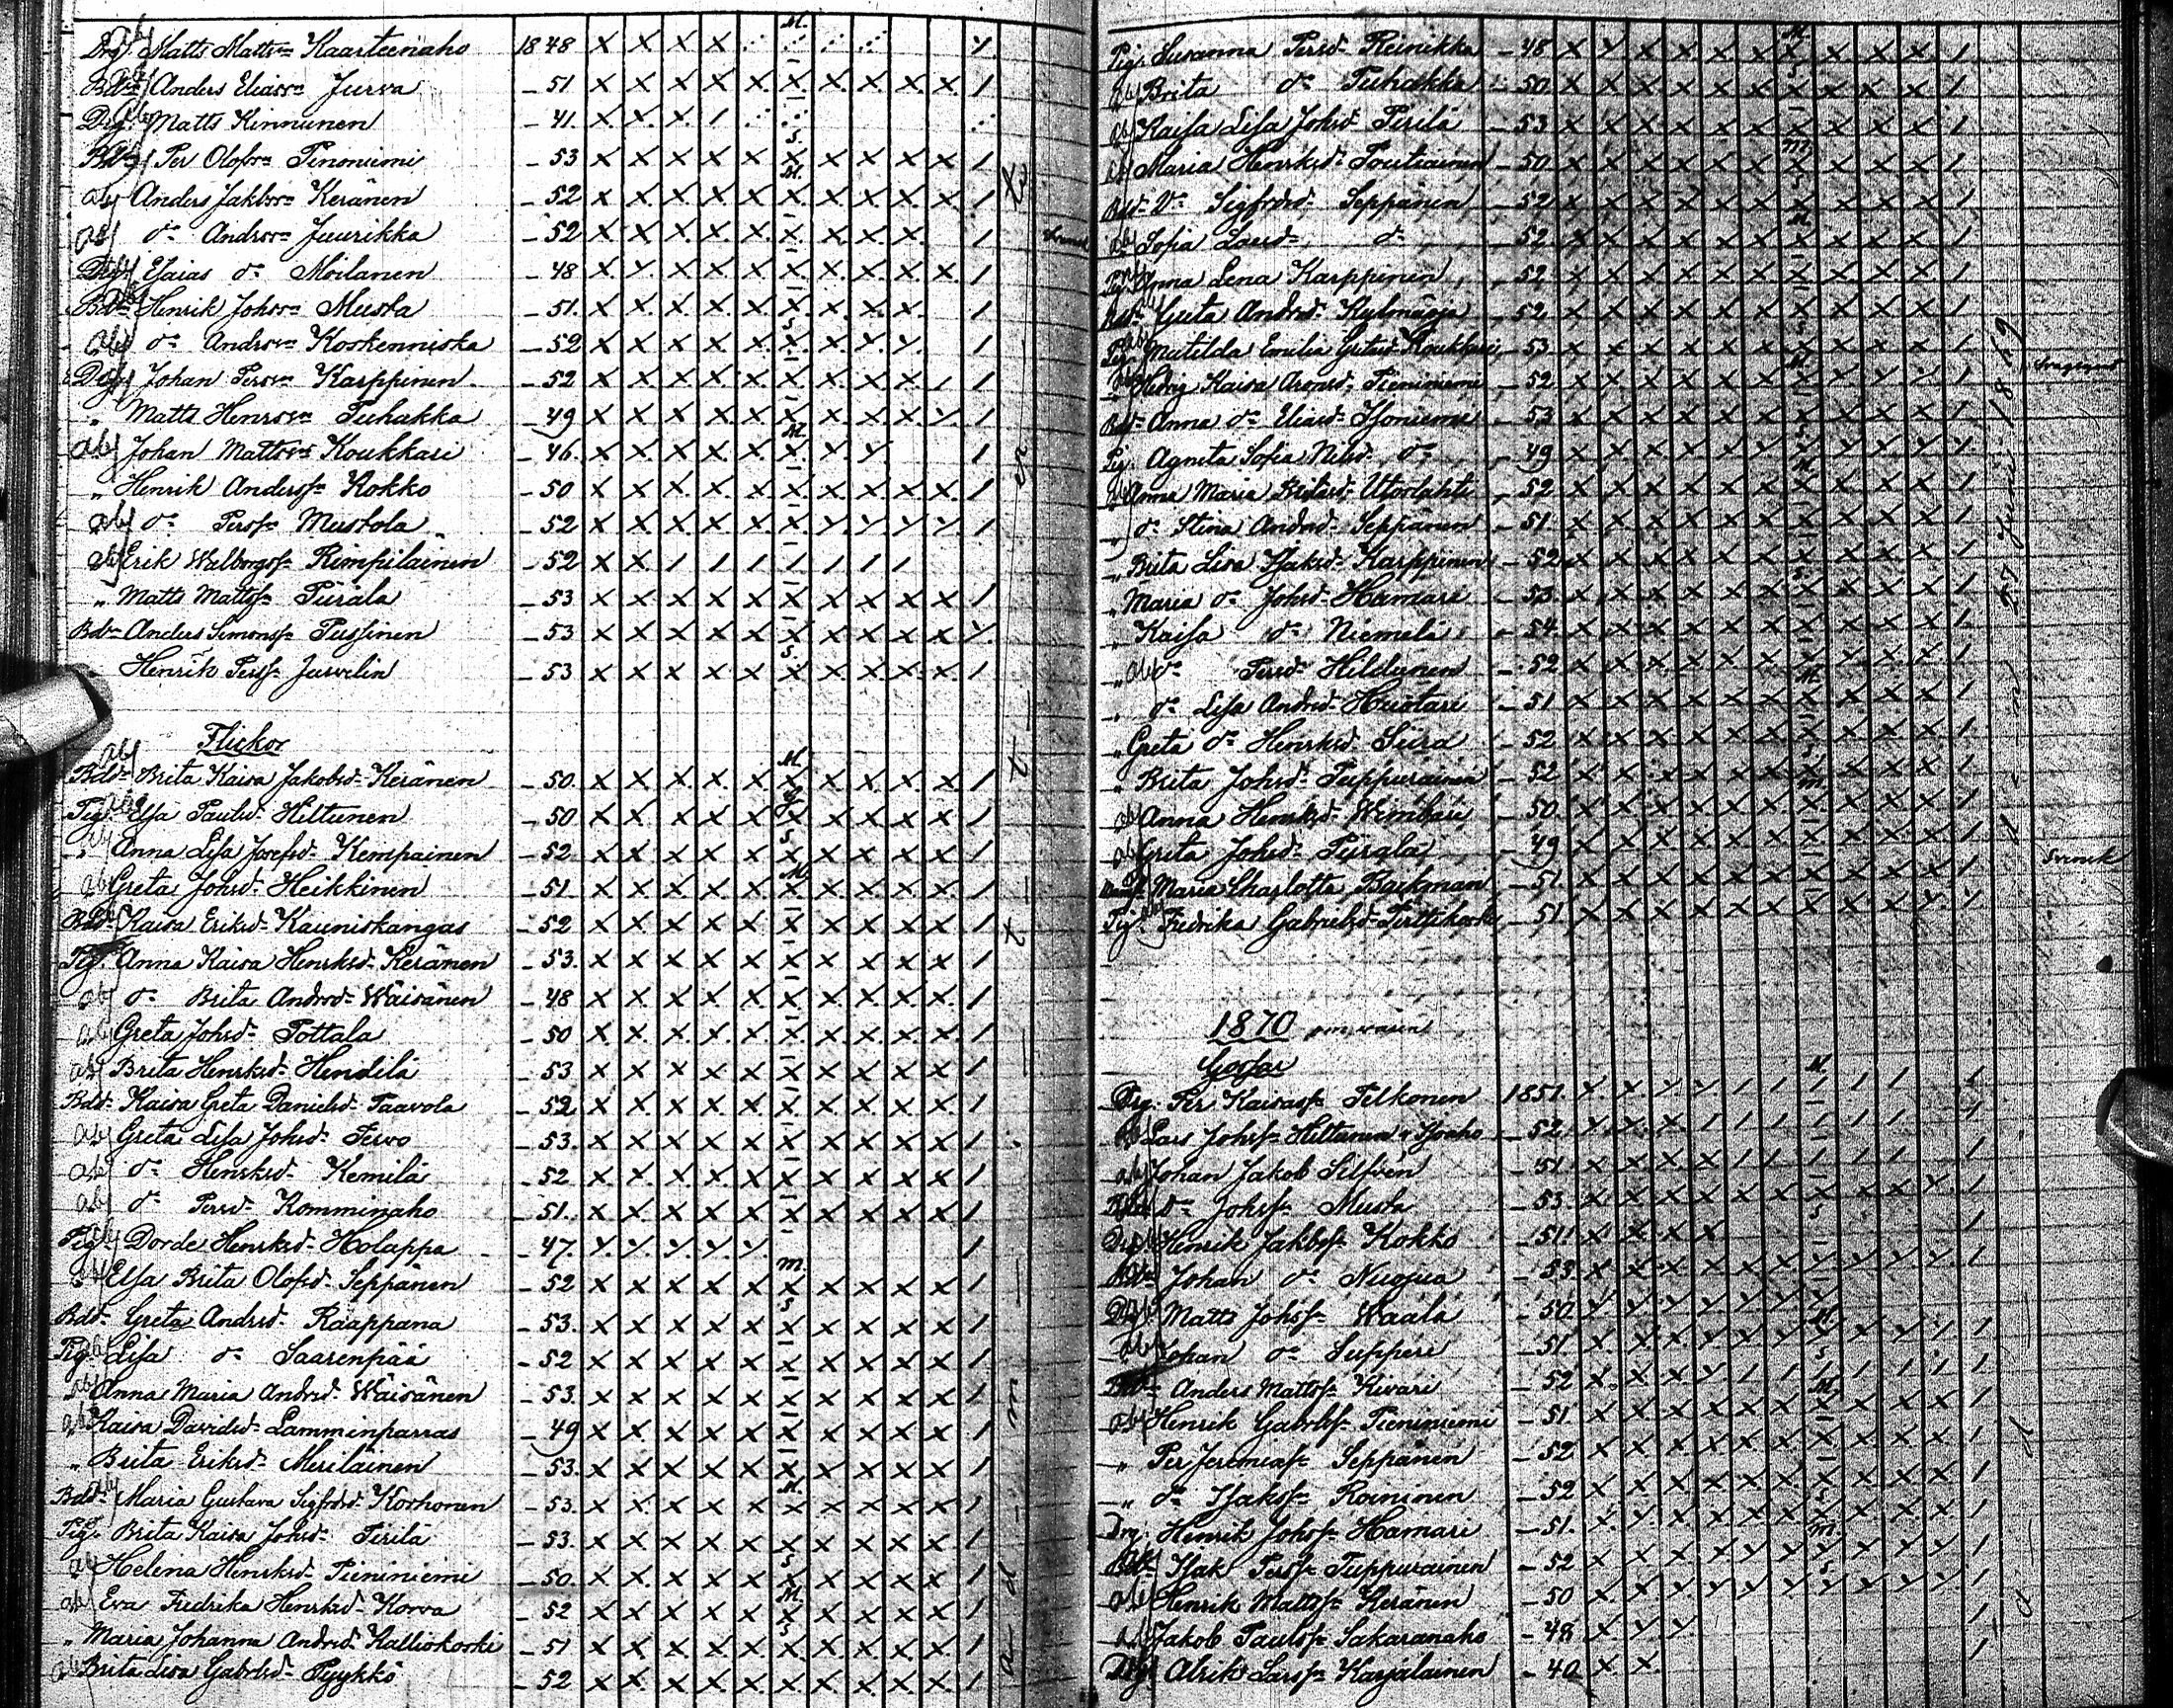 Drg. Matts Mattss:n Kaarteenaho 1848
Bds:n Anders Eliass:n Jurva - 51
Drg. Matts Kinnunen - 41.
Bds:n Per Olofss:n Pinoniemi - 53
Anders Jakbss:n Keränen - 52
d:o Andrss:n Juurikka - 52
Drg. Esaias d:o Moilanen - 48
Bds:n Henrik Johss:n Musta - 51.
d:o Andrss:n Koskenniska - 52
Drg. Johan Perss:n Karppinen - 52
" Matts Henrss:n Tuhakka - 49
Johan Mattss:n Koukkari - 46.
" Henrik Anderss:n Kokko - 50
d:o Perss:n Mustola - 52
Erik Walborgss:n Rimpilainen - 52
" Matts Mattss:n Tiirala - 53
Bds:n Anders Simonss:n Pussinen - 53
Henrik Perss:n Juvelin - 53
Flickor
Bdd:r Brita Kaisa Jakobsd:r Keränen - 50.
Pig. Elsa Paulsd:r Hiltunen - 50
" Anna Lisa Josefsd:r Kempainen - 52
Greta Johsd:r Heikkinen - 51.
Bdd:r Kaisa Eriksd:r Kauniskangas - 52
Pig. Anna Kaisa Henrksd:r Keränen - 53.
d:o Brita Andrsd:r Wäisänen - 48
Greta Johsd:r Tottala - 50
Brita Henrksd:r Hendilä - 53
Bdd:r Kaisa Greta Danielsd:r Taavola - 52
Greta Lisa Johsd:r Tervo - 53.
d:o Henrksd:r Kemilä - 52
d:o Persd:r Komminaho - 51.
Pig. Dorde Henrksd:r Holappa - 47.
Elsa Brita Olofsd:r Seppänen - 52
Bdd:r Greta Andrsd:r Rääppana - 53.
Pig. Lisa d:o Saarenpää - 52
Anna Maria Andrsd:r Wäisänen - 53.
Kaisa Davidsd:r Lamminparras - 49
" Brita Eriksd:r Meriläinen - 53.
Bdd:r Maria Gustava Sigfrdsd:r Korhonen - 53.
Pig. Brita Kaisa Johsd:r Pirilä - 53.
Helena Henrksd:r Pieniniemi - 50.
Eva Fredrika Henrksd:r Korva - 52
" Maria Johanna Andrsd:r Kalliokoski - 51
Brita Lisa Gabrlsd:r Pyykkö - 52
Pig. Susanna Persd:r Reinikka - 48
Brita d:o Tuhakka - 50.
Kaisa Lisa Johsd:r Pirilä - 53
Maria Henrksd:r Toutiainen - 50.
Bdd:r D:o Sigfrdsd:r Seppänen - 52
Sofia Larsd:r d:o - 52
Anna Lena Karppinen - 52
Bdd:r Greta Andrsd:r Kylmäoja - 52
Pig. Matilda Emilia Gretasd:r Koukkari - 53
Hedvig Kaisa Aronsd:r Pieniniemi - 52
Bdd:r Anna d:o Eliasd:r Isoniemi - 53
Pig. Agneta Sofia Nilsd:r d:o - 49
Anna Maria Britasd:r Utoslahti - 52
d:o Stina Andrsd:r Seppänen - 51.
" Brita Lisa Isaksd:r Karppinen - 52
" Maria d:o Johsd:r Hamari - 53.
" Kaisa d:o Niemelä - 54.
" d:o Persd:r Hildunen - 52
" d:o Lisa Andrsd:r Huotari - 51
" Greta d:o Henrksd:r Siira - 52
" Brita Johsd:r Tuppurainen - 52
Anna Henrksd:r Wimpari - 50.
Greta Johsd:r Tyrala - 49
Maria Charlotta Backman - 51.
svensk
Pig. Fredrika Gabrielsd:r Pirttikoski - 51
27 Juni 1869
1870
Gossar
Drg. Per Kaisass:n Pelkonen 1851.
Lars Johss:n Hiltunen - 52.
Johan Jakob Silfvén - 51.
D:o Johss:n Musta - 53.
Drg. Henrik Jakbss:n Kokko - 51.
Johan d:o Nuojua - 53.
Drg. Matts Johss:n Waala - 50.
Johan d:o Supperi - 51
Anders Mattss:n Kivari - 52
Henrik Gabrlss:n Pieniniemi - 51.
" Per Jeremiass:n Seppänen - 52
" d:o Isakss:n Roininen - 52
Drg. Henrik Johss:n Hamari - 51.
Isak Perss:n Tuppurainen - 52
Henrik Mattss:n Keränen - 50
Jakob Paulss:n Sakaranaho - 48
Drg. Alrik Larss:n Karjalainen - 40.